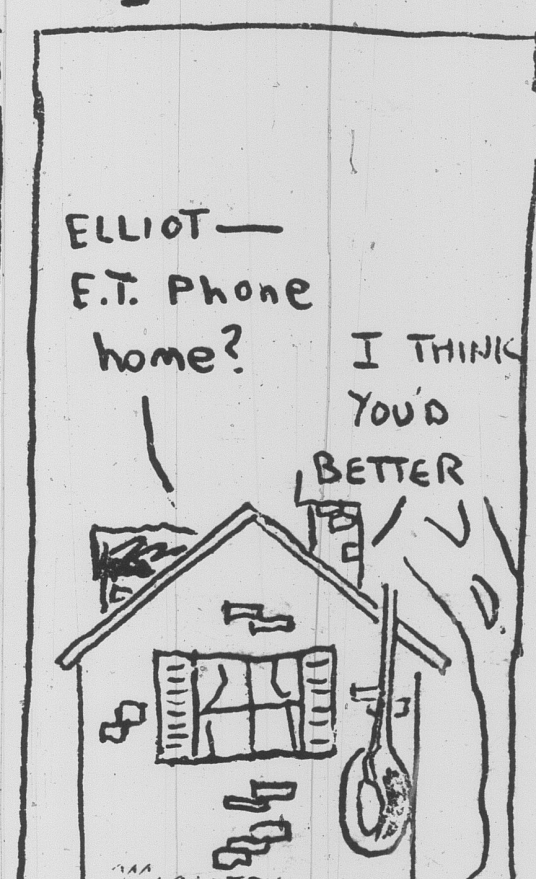 ELLIOT —
E.T. Phone
home?
I THINK
YOU'D
BETTER